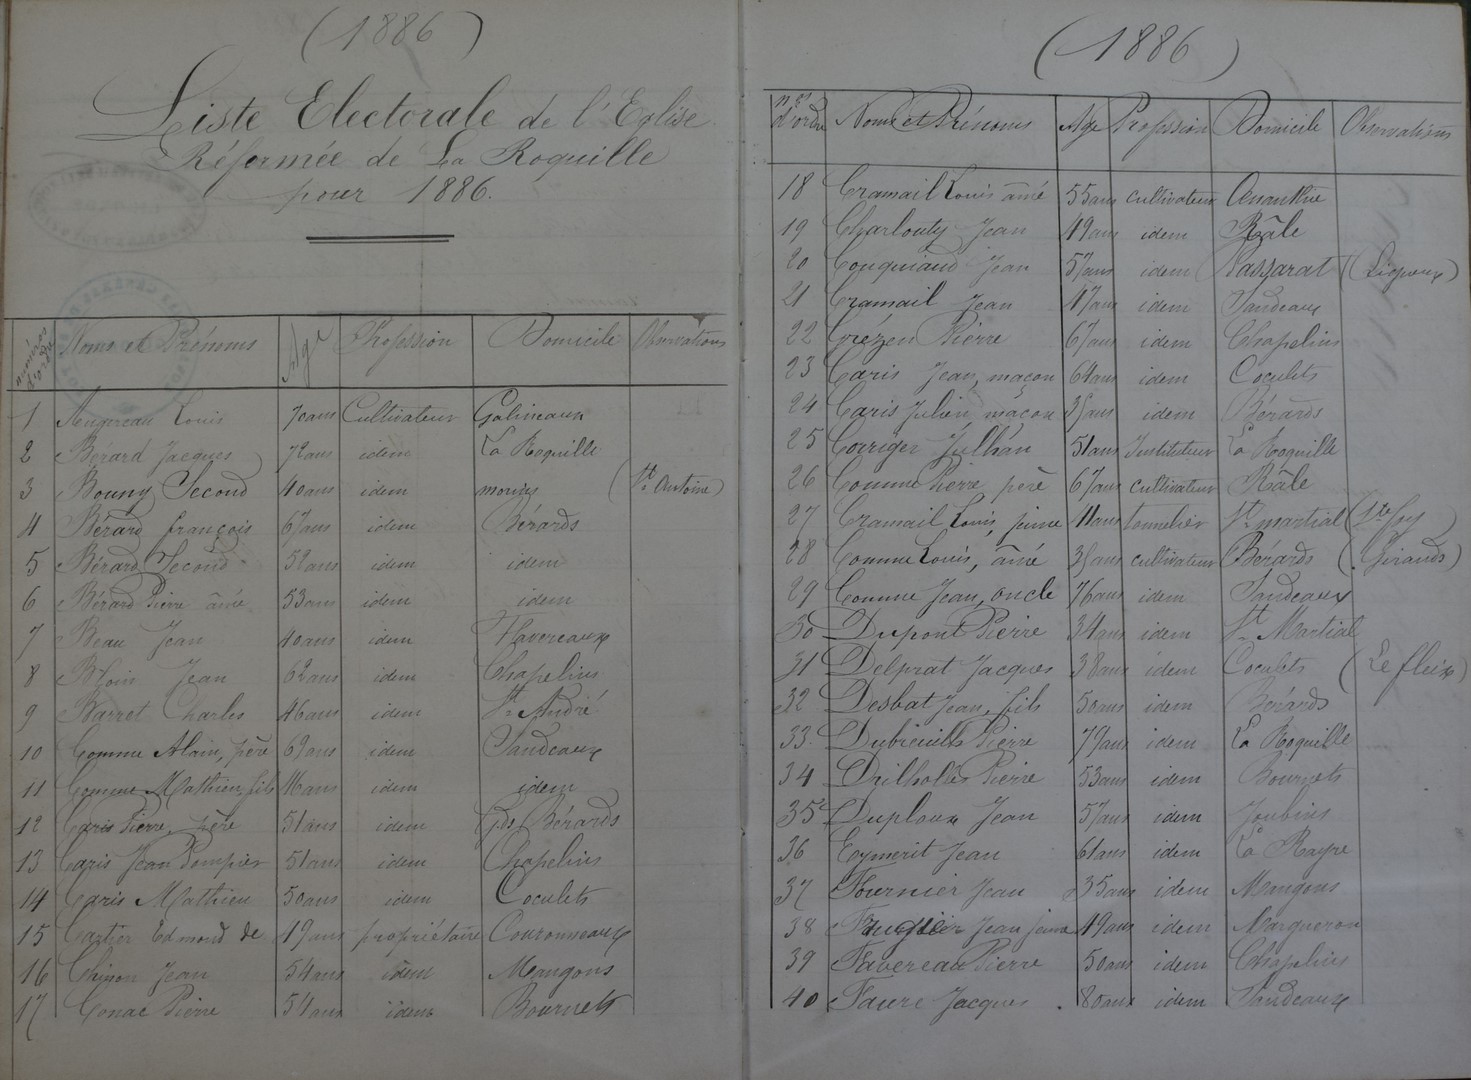 (1886)
Liste Electorale de l'Eglise
Réformée de La Roquille
pour 1886.
numéros d'ordre Noms et Prénoms Age Profession Domicile Observations
1 Augereau Louis 70 ans Cultivateur Galineaux
2 Bérard Jacques 72 ans idem La Roquille
3 Bouny Second 40 ans idem (St Antoine)
4 Bérard françois 67 ans idem Bérards
5 Bérard Second 52 ans idem idem
6 Bérard Pierre âiné 53 ans idem idem
7 Beau Jean 40 ans idem Favereaux
8 Jean 62 ans idem Chapelins
9 Barret Charles 46 ans idem St André
10 Comme Alain, père 69 ans idem Sandeaux
11 Comme Mathieu, fils ans idem idem
12 Caris Pierre, père 51 ans idem Gds Bérards
13 Caris Jean Pompier 51 ans idem Chapelins
14 Caris Mathieu 50 ans idem Coculets
15 Cartier Edmond de 49 ans propriétaire Couronneaux
16 Chinon Jean 54 ans idem Mangons
17 Conac Pierre 54 ans idem Bournets
(1886)
nos d'ordre Noms et Prénoms Age Profession Domicile Observations
18 Cramail Louis âiné 55 ans cultivateur
19 Charlouty Jean 49 ans idem Râle
20 Couquiaud Jean 57 ans idem Passarat (Ligueux)
21 Cramail Jean 47 ans idem Sandeaux
22 Crézen Pierre 67 ans idem Chapelins
23 Caris Jean, maçon 64 ans idem Coculets
24 Caris Julien, maçon 35 ans idem Bérards
25 Corriger 51 ans Instituteur La Roquille
26 Comme Pierre père 67 ans cultivateur Râle
27 Cramail Louis, jeune 41 ans tonnelier St martial (Ste foy
28 Comme Louis, âiné 35 ans cultivateur Bérards (Girauds)
29 Comme Jean, oncle 76 ans idem Sandeaux
30 Dupont Pierre 34 ans idem St Martial
31 Delprat Jacques 38 ans idem Coculets (Le fleix)
32 Desbat Jean, fils 50 ans idem Bérards
33 Dubreuilh Pierre 79 ans idem La Roquille
34 Drilholles Pierre 53 ans idem Bournets
35 Duploux Jean 57 ans idem Joubins
36 Eymerit Jean 61 ans idem La Rayre
37 Fournier Jean 35 ans idem Mangons
38 Jean jeune 49 ans idem Margueron
39 Favereau Pierre 50 ans idem Chapelins
40 Faure Jacques 80 ans idem Sandeaux